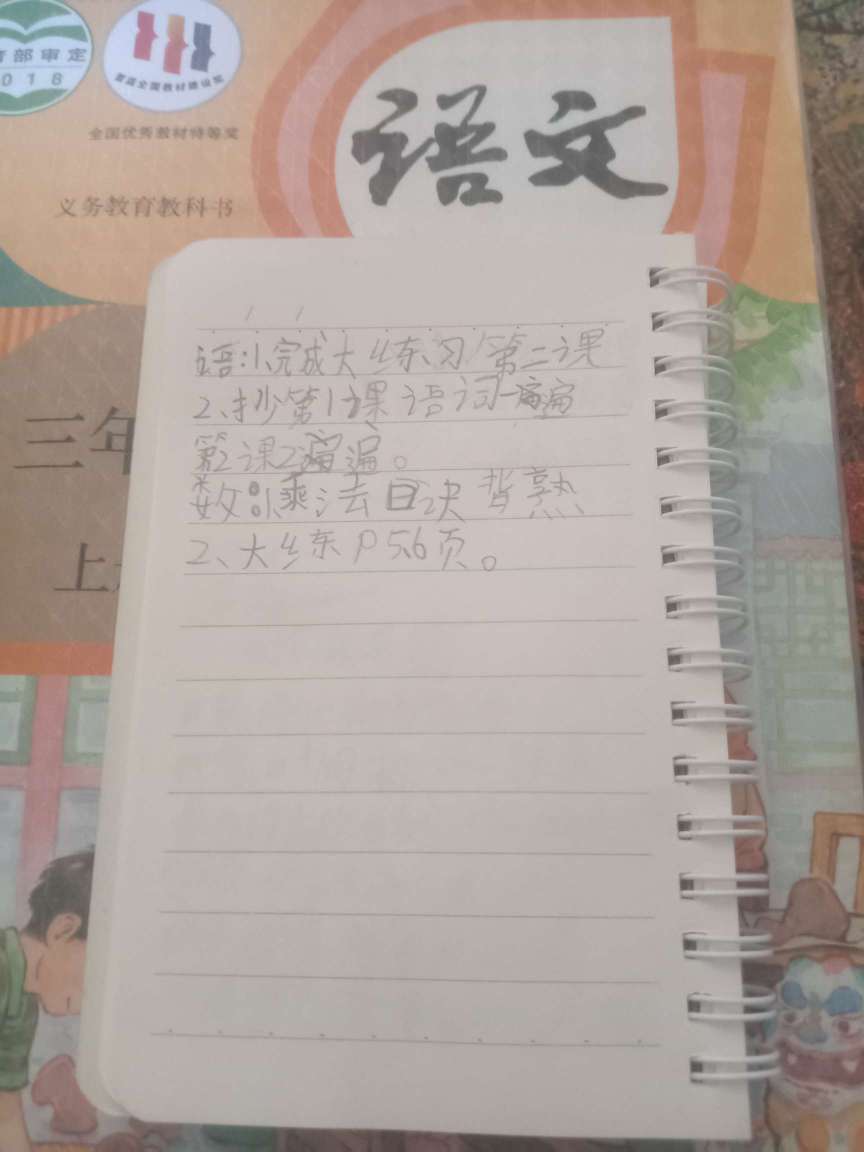 育部审定
2018
首届全国教材建设奖
全国优秀教材特等奖
义务教育教科书
语文
三年
上
语:1、完成大练习第二课
2、抄第1课语词一遍
第2课2遍。
数:1、乘法口诀背熟
2、大练P5.6页。